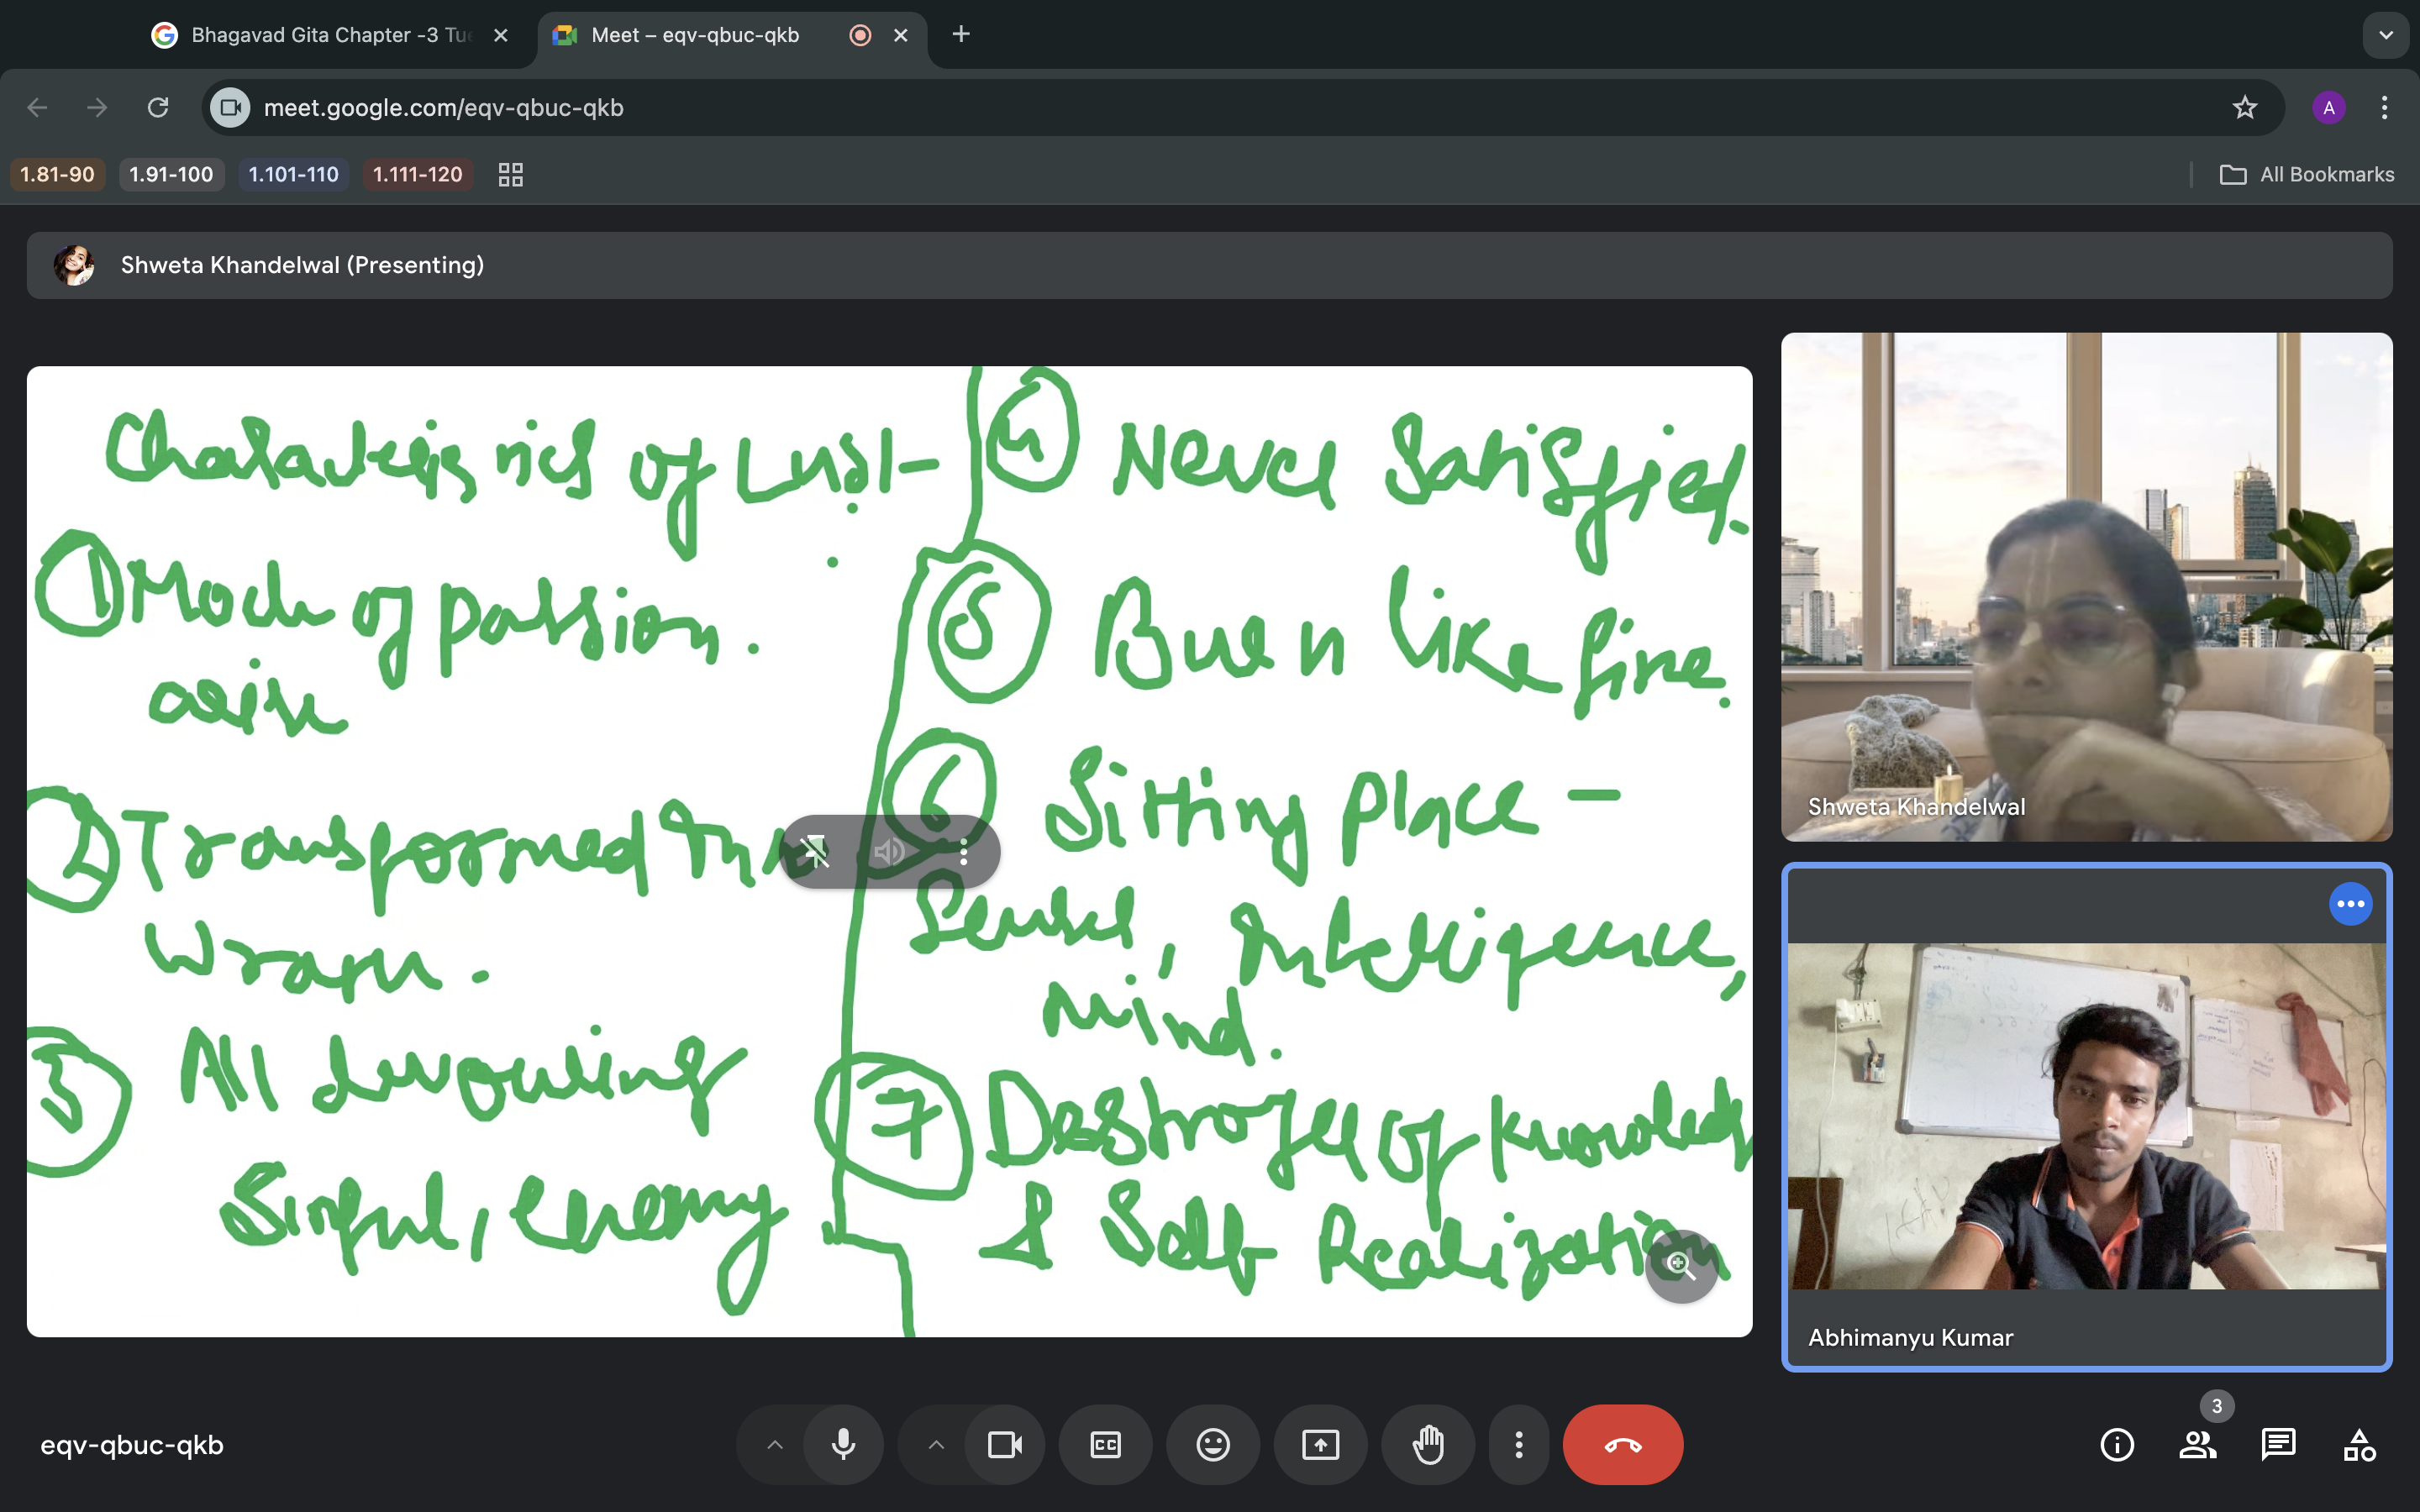 Bhagavad Gita Chapter -3 Tue
Meet – eqv-qbuc-qkb
meet.google.com/eqv-qbuc-qkb
A
1.81-90
1.91-100
1.101-110
1.111-120
All Bookmarks
Shweta Khandelwal (Presenting)
of Lust-
① Mode of passion.
arise
② Transformed Into
Wrath.
③ All devouring
Sinful, enemy
④ Never Satisfied.
⑤ Burn like fire.
⑥ Sitting place -
Senses, Intelligence,
mind.
⑦ Destroyer of knowledg
& Self Realization
Shweta Khandelwal
Abhimanyu Kumar
eqv-qbuc-qkb
CC
3